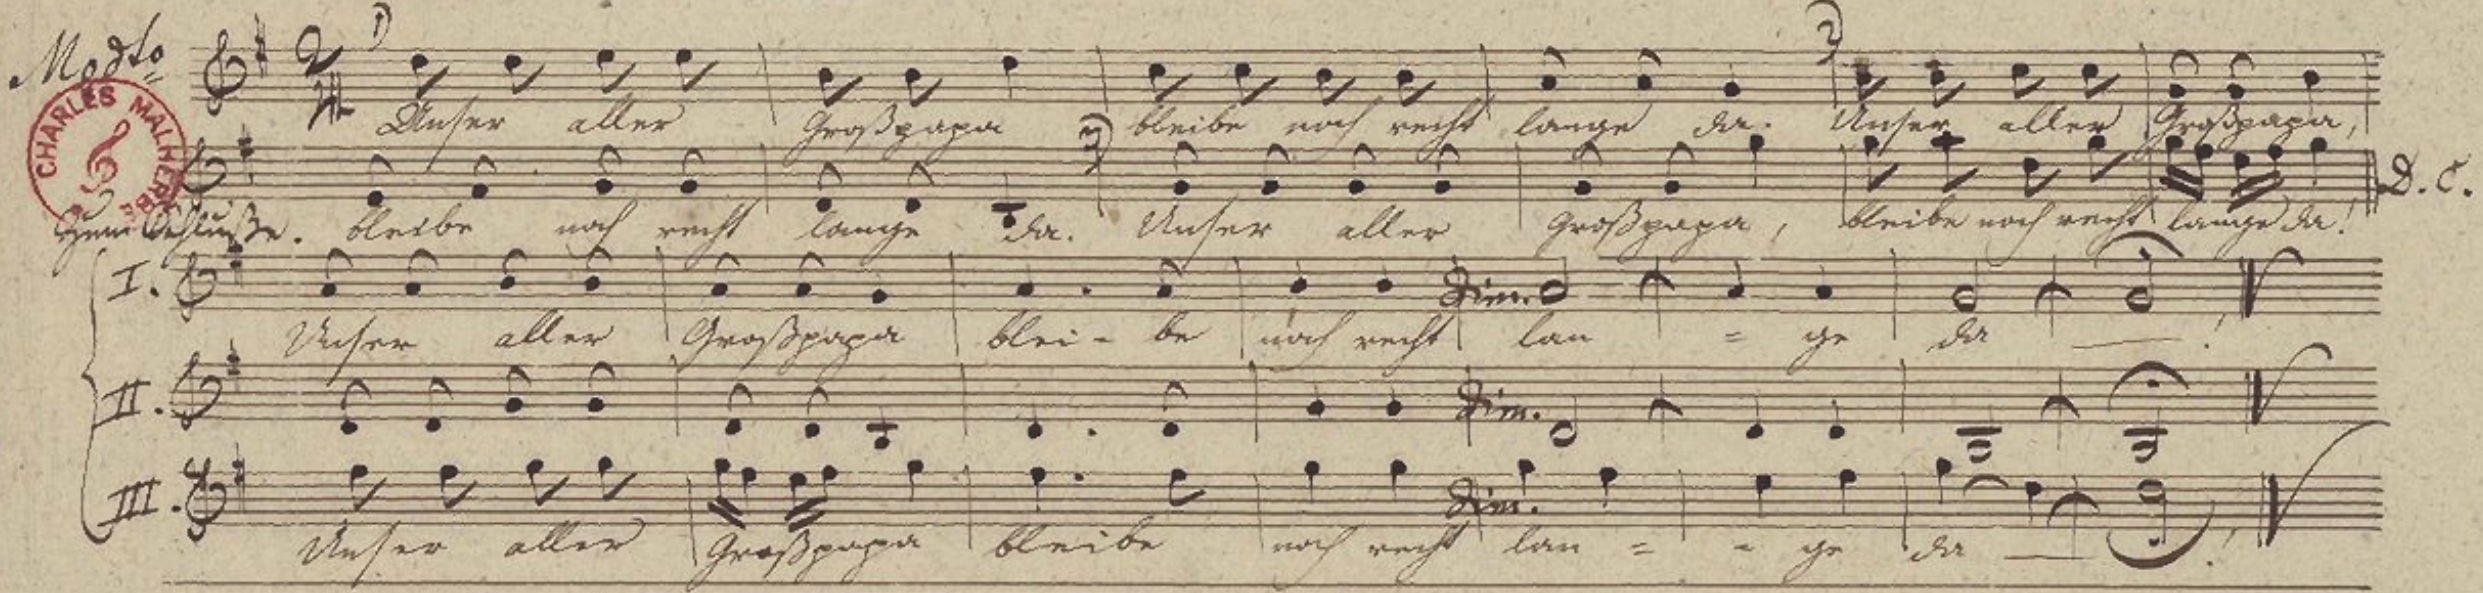 Modto
1) 2)
Unser aller Großpapa bleibe noch recht lange da. Unser aller Großpapa,
CHARLES MALHERBE
3)
bleibe noch recht lange da. Unser aller Großpapa, bleibe noch recht lange da! D. C.
Zum Schluße.
I. Dim.
Unser aller Großpapa blei - be noch recht lan = ge da!
II. Dim.
III. Dim.
Unser aller Großpapa bleibe noch recht lan = - ge da!